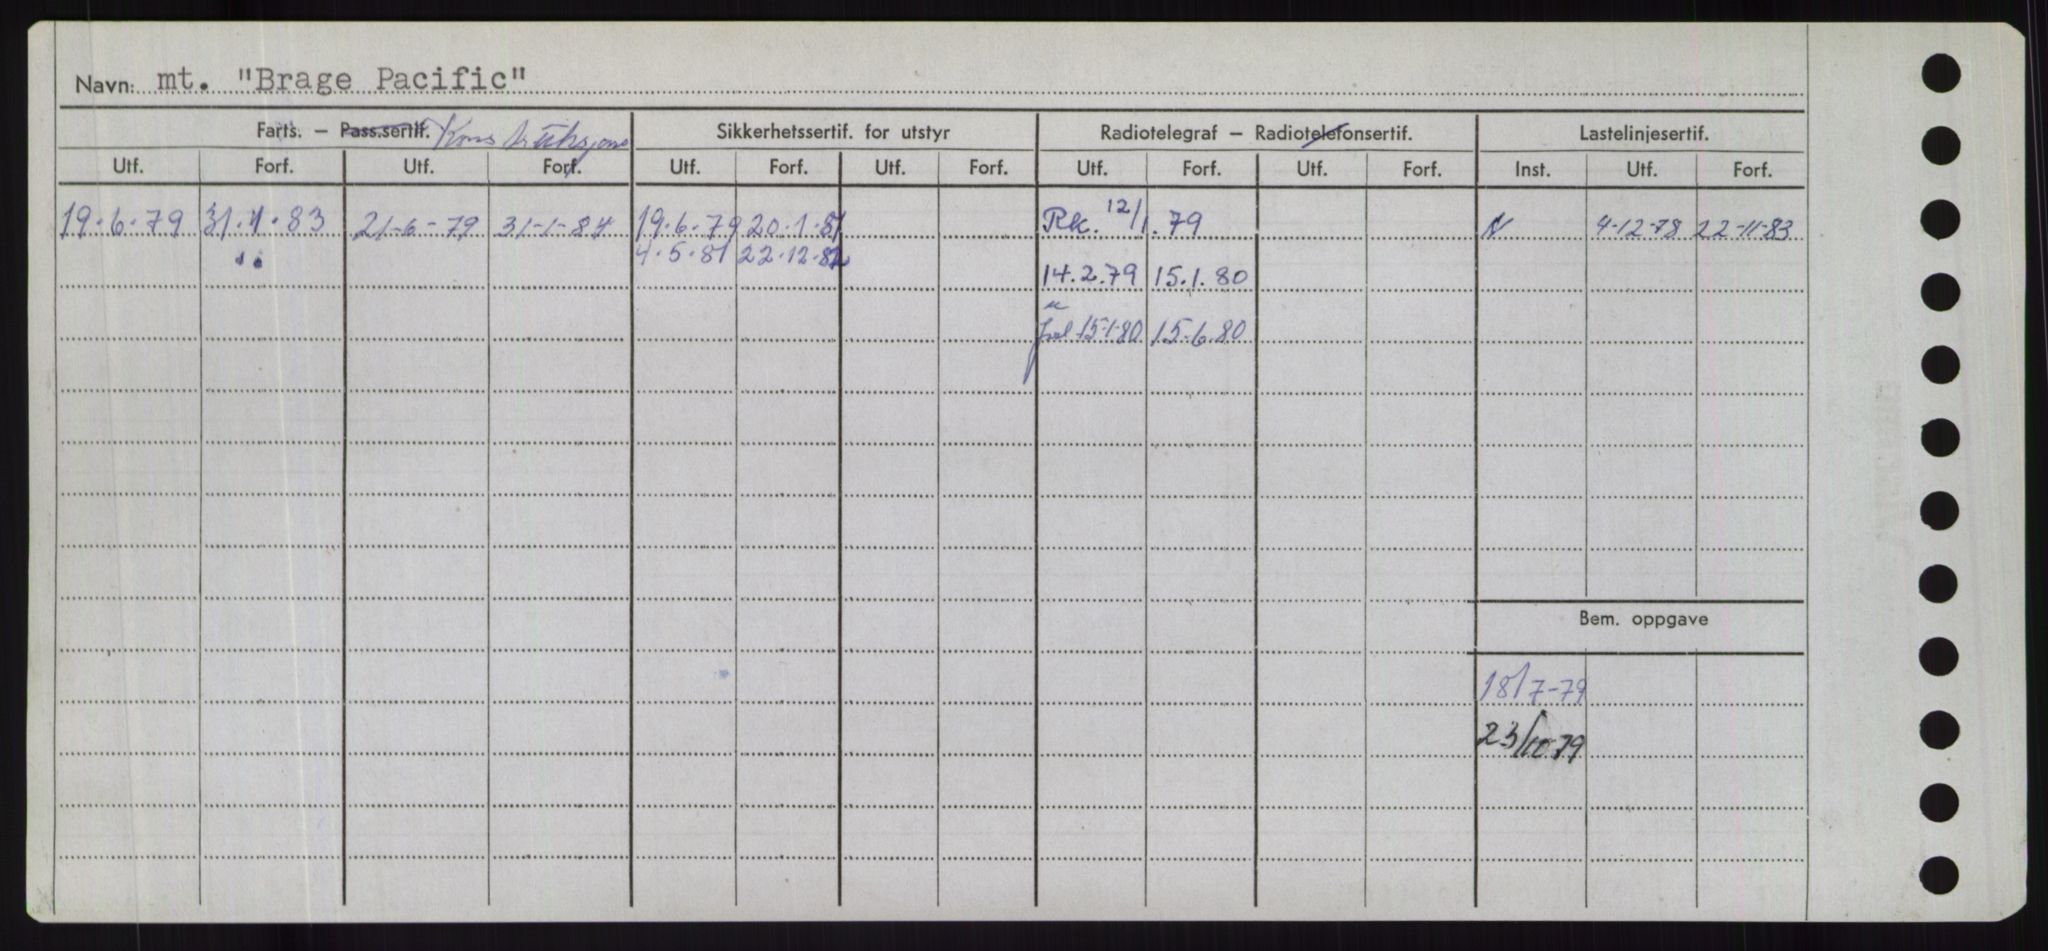 Navn: mt. "Brage Pacific"
Farts. – Pass.sertif. Konstruksjons Sikkerhetssertif. for utstyr Radiotelegraf – Radiotelefonsertif. Lastelinjesertif.
Utf. Forf. Utf. Forf. Utf. Forf. Utf. Forf. Utf. Forf. Utf. Forf. Inst. Utf. Forf.
19.6.79 31.1.83 21-6-79 31-1-84 19.6.79 20.1.81 Rk. 12/1.79 N 4-12-78 22-11-83
4.5.81 22.12.82
14.2.79 15.1.80
15-1-80 15.6.80
Bem. oppgave
18/7-79
23/10 79